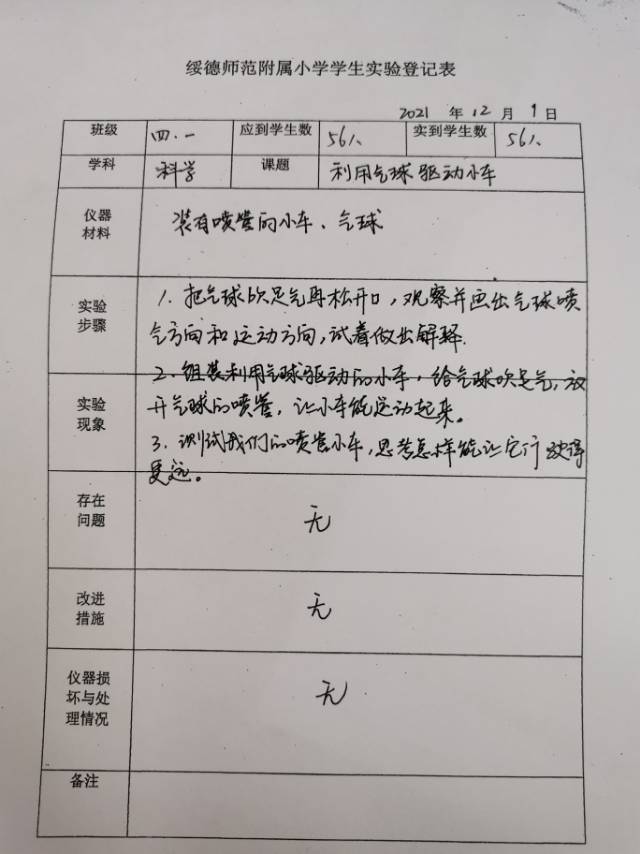 绥德师范附属小学学生实验登记表
2021 年 12 月 1 日
班级 四.一 应到学生数 56人 实到学生数 56人
学科 科学 课题 利用气球驱动小车
仪器材料 装有喷管的小车、气球
实验步骤
1. 把气球吹足气再松开口,观察并画出气球喷
气方向和运动方向,试着做出解释.
2. 组装利用气球驱动的小车,给气球吹足气,放
实验现象
开气球的喷管,让小车能运动起来。
3. 测试我们的喷管小车,思考怎样能让它行驶得
更远。
存在问题 无
改进措施 无
仪器损坏与处理情况 无
备注